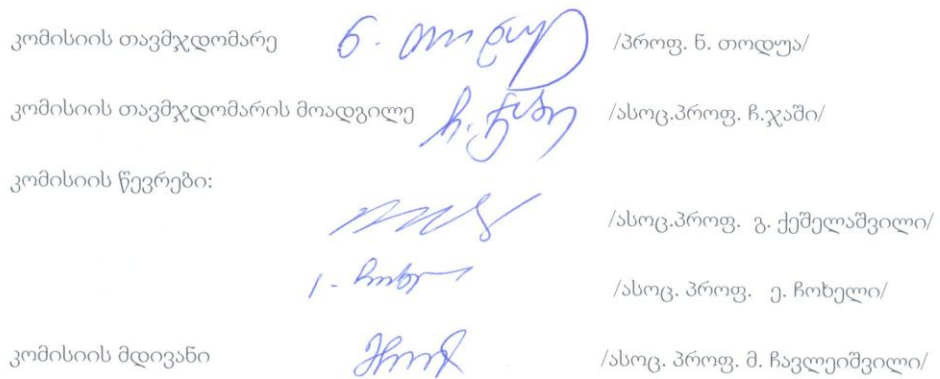 კომისიის თავმჯდომარე /პროფ. ნ. თოდუა/
კომისიის თავმჯდომარის მოადგილე /ასოც.პროფ. ჩ.ჯაში/
კომისიის წევრები:
/ასოც.პროფ. გ. ქეშელაშვილი/
/ასოც. პროფ. ე. ჩოხელი/
კომისიის მდივანი /ასოც. პროფ. მ. ჩავლეიშვილი/